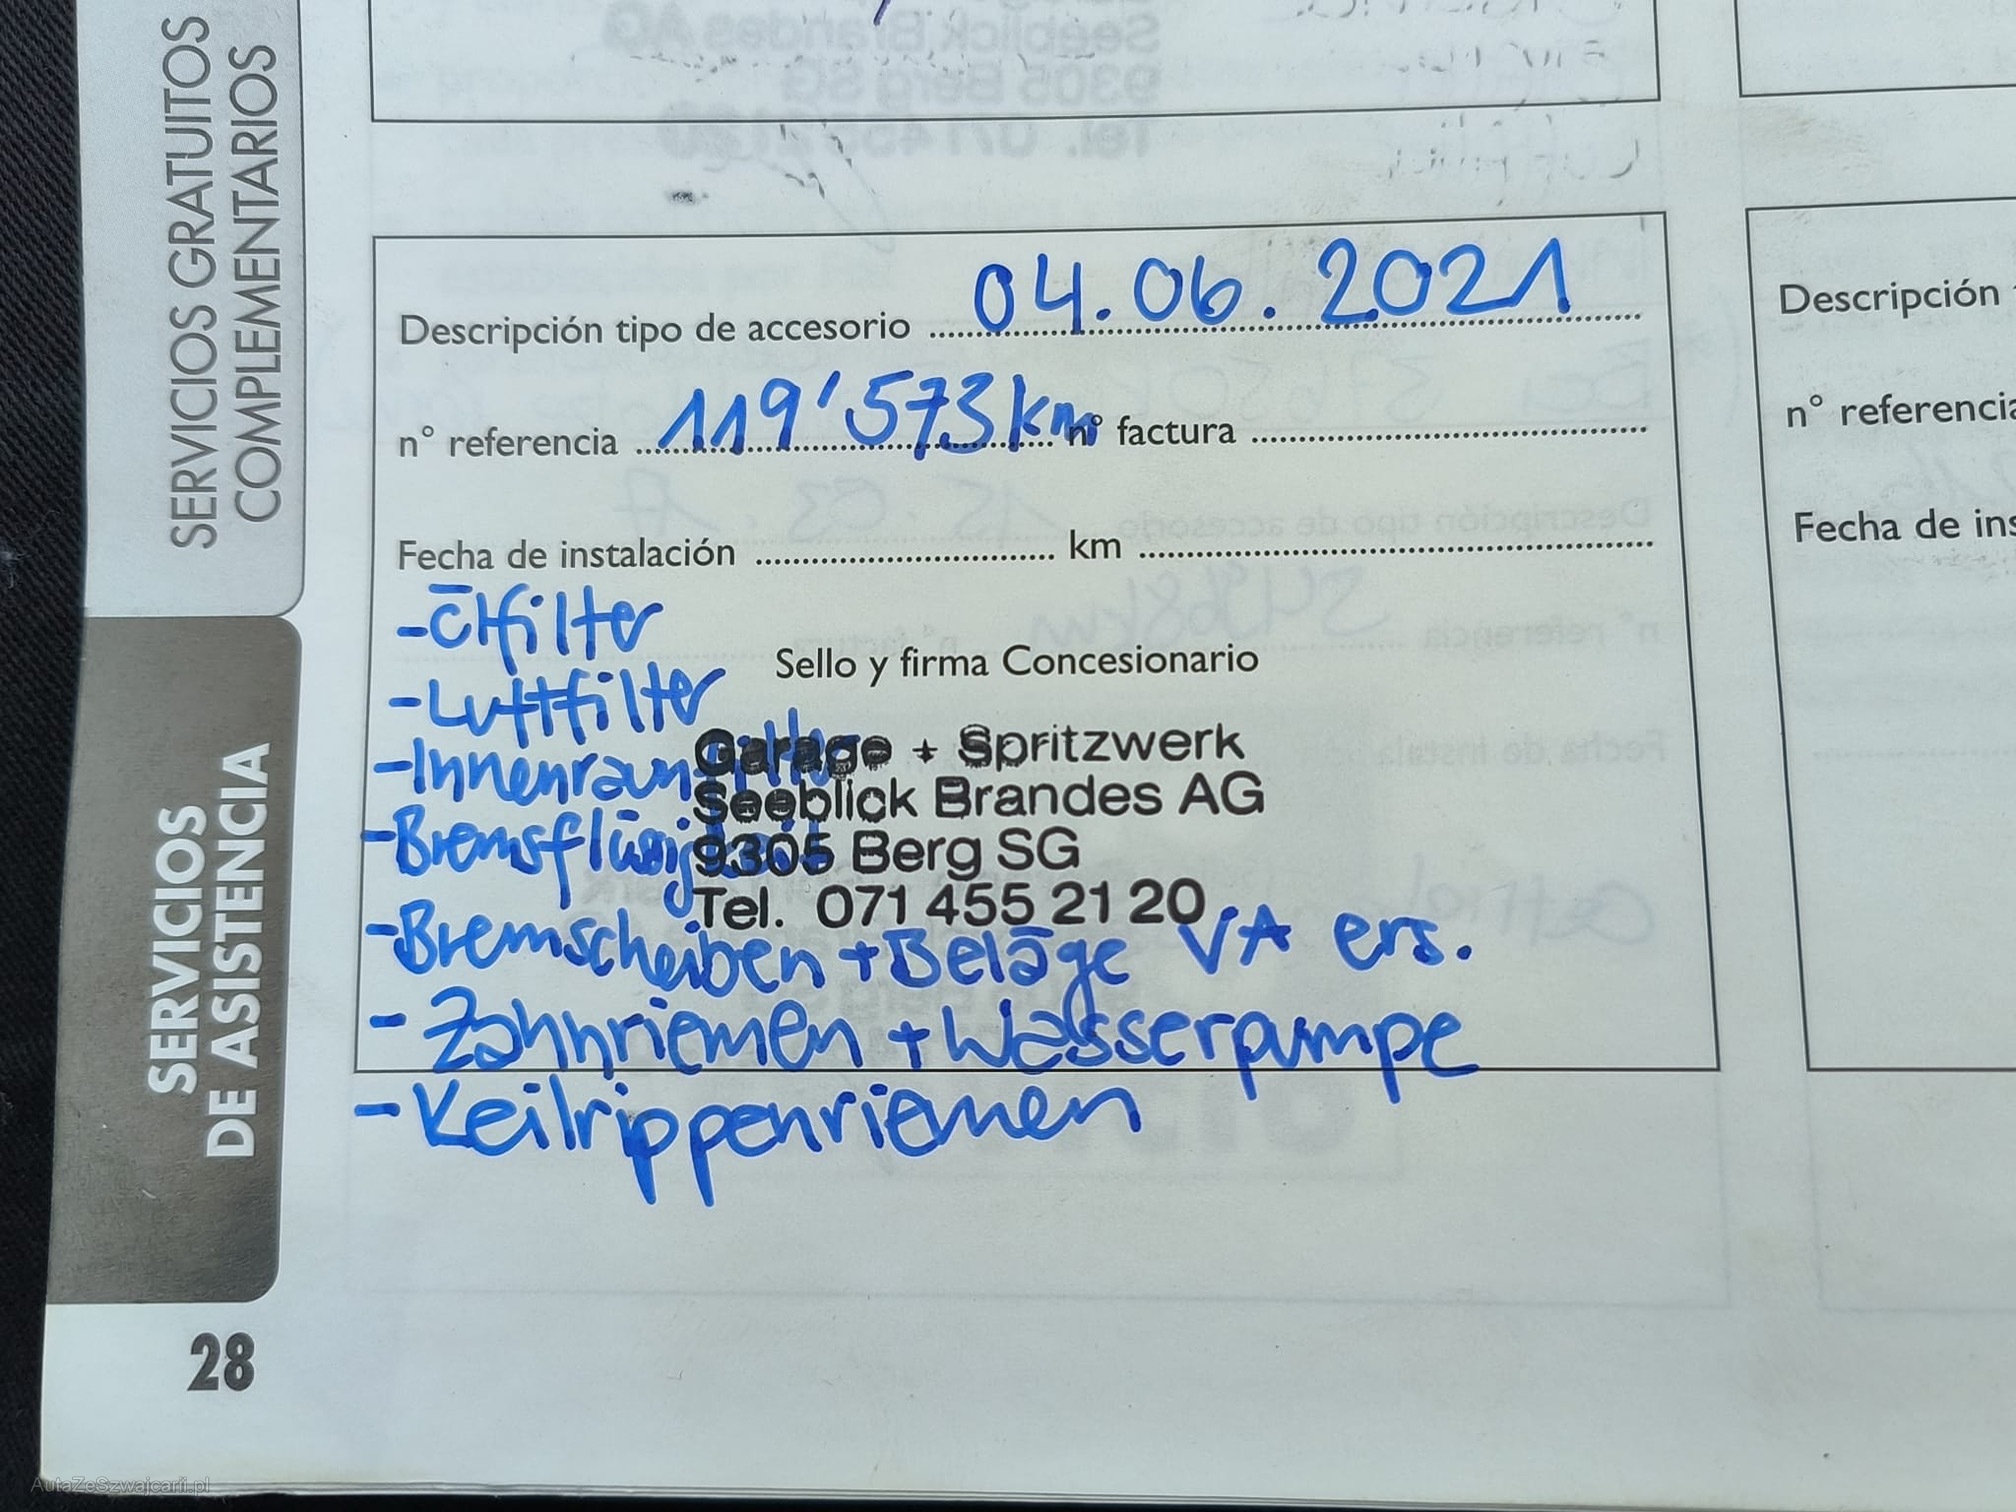 SERVICIOS GRATUITOS
COMPLEMENTARIOS
SERVICIOS
DE ASISTENCIA
28
Descripción tipo de accesorio 04.06.2021
n° referencia 119'573km n° factura
Fecha de instalación km
- Ölfilter
- Luftfilter
Sello y firma Concesionario
- Innenraumfilter
- Bremsflüssigkeit
Garage + Spritzwerk
Seeblick Brandes AG
9305 Berg SG
Tel. 071 455 21 20
- Bremscheiben + Beläge VA ers.
- Zahnriemen + Wasserpumpe
- Keilrippenriemen
Descripción
n° referencia
Fecha de ins
Seeblick Brandes AG
9305 Berg SG
Tel. 071 455 21 20
AutaZeSzwajcarii.pl